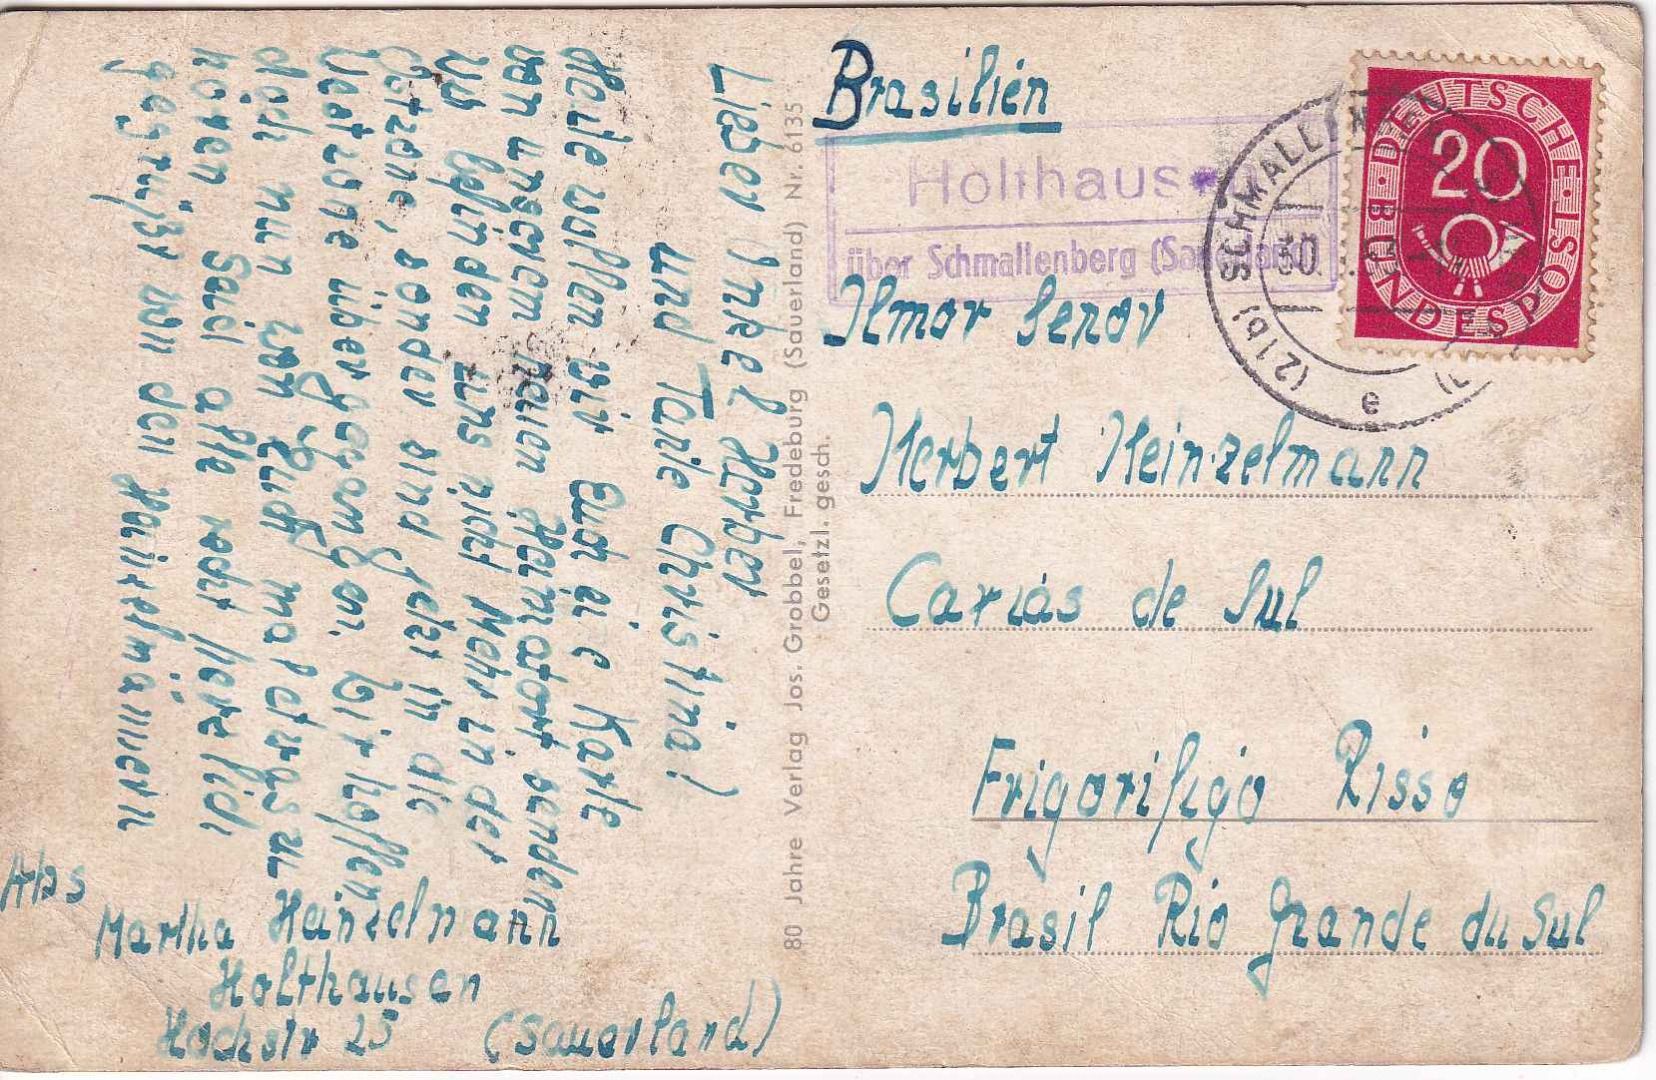 Lieber Onkel Herber
und Tante Christina!
Heute wollen wir Euch eine Karte
von unserem neuen Heimatort senden
Wir befinden uns nicht Mehr in der
Ostzone, sonder sind jetzt in die
Westzone übergegangen. Wir hoffen
doch nun von Euch mal etwas zu
hören. Seid alle recht herzlich
gegrüßt von den Heinzelmännern
Abs
Martha Heinzelmann
Holthausen
Hochstr 25 (Sauerland)
80 Jahre Verlag Jos. Grobbel, Fredeburg (Sauerland) Nr. 6135
Gesetzl. gesch.
Brasilién
Holthaus
über Schmallenberg (Sauerland)
(21b) SCHMALLENBERG
30.
e
DEUTSCHE BUNDESPOST
20
Ilmor Senov
Herbert Heinzelmann
Carias de Sul
Frigorifigo Risso
Brasil Rio Grande du Sul